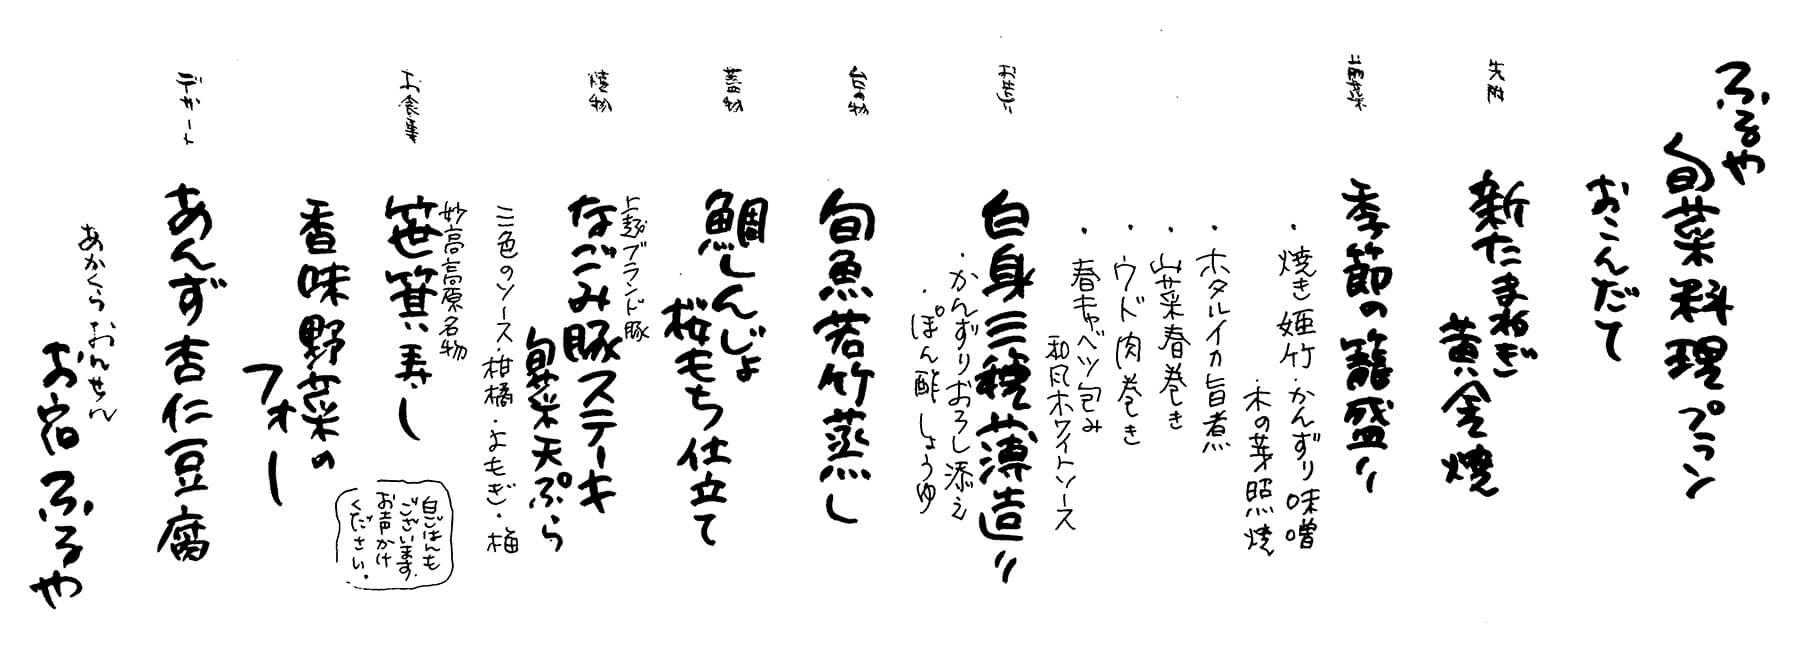 ふるや
旬菜料理プラン
おこんだて
先附
新たまねぎ
黄金焼
前菜
季節の籠盛り
・焼き姫竹・かんずり味噌
・木の芽照焼
・ホタルイカ旨煮
・山菜春巻き
・ウド肉巻き
・春キャベツ包み
和風ホワイトソース
お造り
白身三種薄造り
・かんずりおろし添え
・ぽん酢しょうゆ
台の物
旬魚若竹蒸し
蓋物
鯛しんじょ
桜もち仕立て
焼物
上越ブランド豚
なごみ豚ステーキ
旬菜天ぷら
三色のソース・柑橘・よもぎ・梅
お食事
妙高高原名物
笹箕寿し
白ごはんも
ございます。
お声かけ
ください。
香味野菜の
フォー
デザート
あんず杏仁豆腐
あかくらおんせん
お宿ふるや